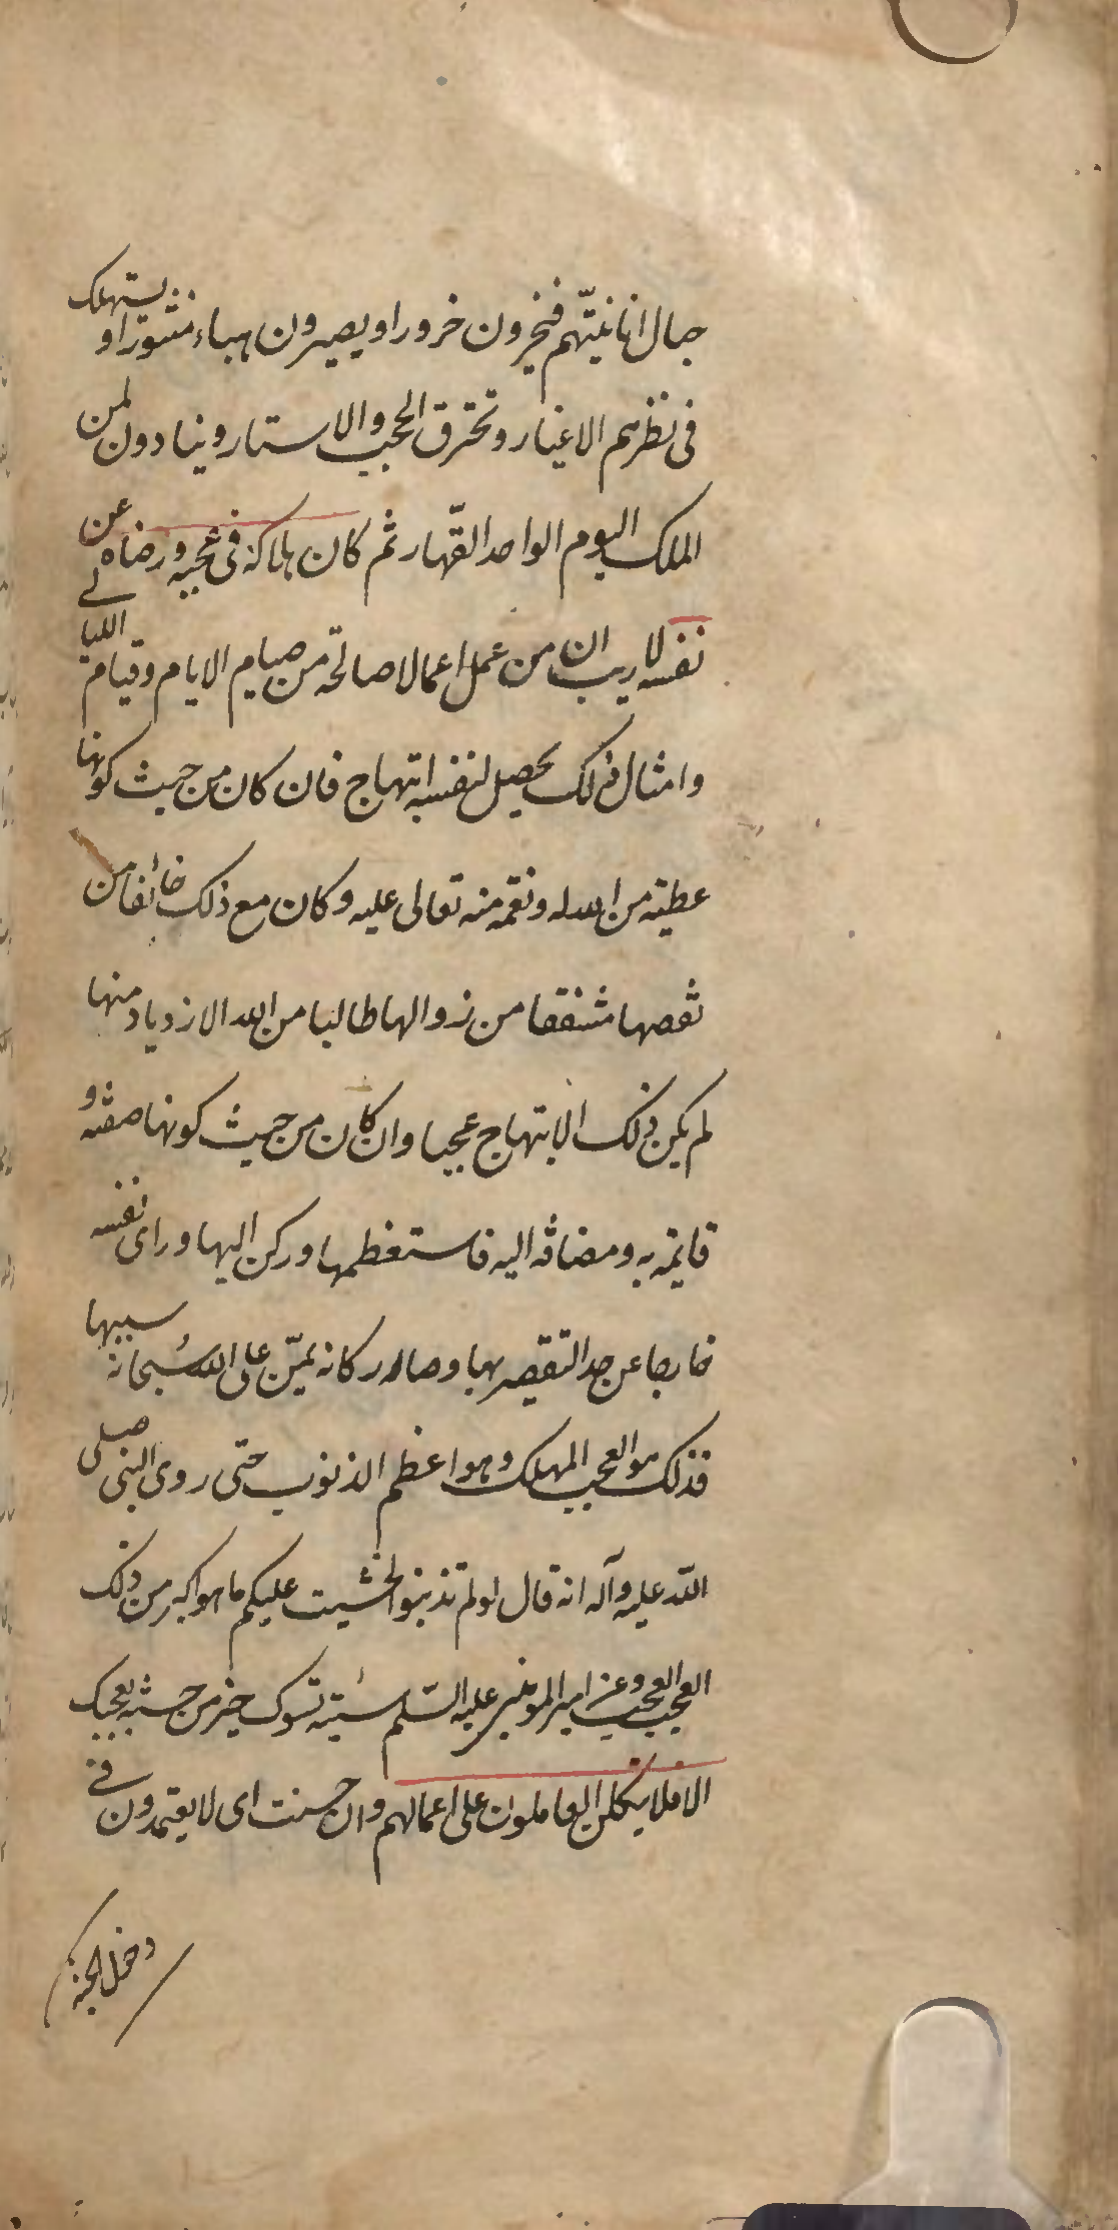 جبال انانيّتهم فيخرون خرورا و يصيرون هباء منثورا و يستهلك
فى نظرهم الاغيار و تحترق الحجب و الاستار و ينادون لمن
الملك اليوم الواحد القهّار ثم كان هلاكه فى عجبه و رضاه عن
نفسه لا ريب ان من عمل اعمالا صالحة من صيام الايام و قيام الليالى
و امثال ذلك يحصل لنفسه ابتهاج فان كان من حيث كونها
عطية من الله له و نعمة منه تعالى عليه و كان مع ذلك خائفا من
نقصها مشفقا من زوالها طالبا من الله الازدياد منها
لم يكن ذلك الابتهاج عجبا و ان كان من حيث كونها صفته و
قايمة به و مضافة اليه فاستعظمها و ركن اليها و راى نفسه
خارجا عن حد التقصير بها و صار كانه يمنّ على الله سبحانه بسببها
فذلك هو العجب المهلك و هو اعظم الذنوب حتى روى النبى صلى
الله عليه و آله انه قال لو لم تذنبوا لخشيت عليكم ما هو اكبر من ذلك
العجب العجب و عن امير المومنين عليه السّلم سيّئة تسؤك خير من حسنة تعجبك
الا فلا يتكلن العاملون على اعمالهم و ان حسنت اى لا يعتمدون فى
دخول الجنة